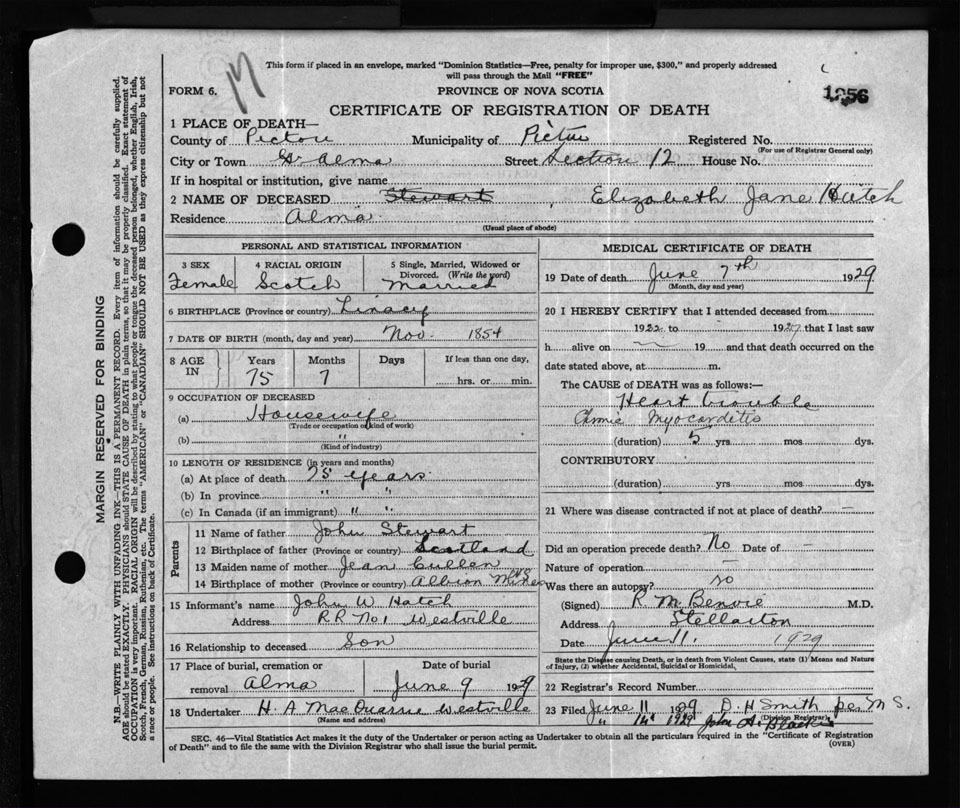 This form if placed in an envelope, marked "Dominion Statistics—Free, penalty for improper use, $300," and properly addressed
will pass through the Mail "FREE"
FORM 6.
PROVINCE OF NOVA SCOTIA
1256
CERTIFICATE OF REGISTRATION OF DEATH
1 PLACE OF DEATH—
County of Pictou Municipality of Pictou Registered No.
(For use of Registrar General only)
City or Town Alma Street Section 12 House No.
If in hospital or institution, give name
2 NAME OF DECEASED Stewart, Elizabeth Jane Hatch
Residence Alma
(Usual place of abode)
PERSONAL AND STATISTICAL INFORMATION
3 SEX 4 RACIAL ORIGIN 5 Single, Married, Widowed or
Divorced. (Write the word)
Female Scotch Married
6 BIRTHPLACE (Province or country) Linacy
7 DATE OF BIRTH (month, day and year) Nov. 1854
8 AGE IN Years Months Days If less than one day,
75 7 hrs. or min.
9 OCCUPATION OF DECEASED
(a) Housewife
(Trade or occupation or kind of work)
(b) "
(Kind of industry)
10 LENGTH OF RESIDENCE (in years and months)
(a) At place of death 75 years
(b) In province " "
(c) In Canada (if an immigrant) " "
Parents
11 Name of father John Stewart
12 Birthplace of father (Province or country) Scotland
13 Maiden name of mother Jean Cullen
14 Birthplace of mother (Province or country) Albion Mines NS
15 Informant's name John W Hatch
Address RR No 1 Westville
16 Relationship to deceased Son
17 Place of burial, cremation or Date of burial
removal Alma June 9 1929
18 Undertaker H A MacQuarrie Westville
(Name and address)
MEDICAL CERTIFICATE OF DEATH
19 Date of death June 7th 1929
(Month, day and year)
20 I HEREBY CERTIFY that I attended deceased from
1922 to 1927 that I last saw
h alive on 19 and that death occurred on the
date stated above, at m.
The CAUSE of DEATH was as follows:—
Heart trouble
Chronic Myocarditis
(duration) 5 yrs. mos dys.
CONTRIBUTORY
(duration) yrs. mos. dys.
21 Where was disease contracted if not at place of death? —
Did an operation precede death? No Date of —
Nature of operation —
Was there an autopsy? no
(Signed) R. M. Benvie M.D.
Address Stellarton
Date June 11. 1929
State the Disease causing Death, or in death from Violent Causes, state (1) Means and Nature
of Injury, (2) whether Accidental, Suicidal or Homicidal,
22 Registrar's Record Number
23 Filed June 11 1929 D. H Smith per M S.
(Division Registrar)
" 14th 1929 John A. Blackie
SEC. 46—Vital Statistics Act makes it the duty of the Undertaker or person acting as Undertaker to obtain all the particulars required in the "Certificate of Registration
of Death" and to file the same with the Division Registrar who shall issue the burial permit.
(OVER)
MARGIN RESERVED FOR BINDING
N.B.—WRITE PLAINLY WITH UNFADING INK—THIS IS A PERMANENT RECORD. Every item of information should be carefully supplied.
AGE should be stated EXACTLY. PHYSICIANS should STATE CAUSE OF DEATH in plain terms, so that it may be properly classified. Exact statement of
OCCUPATION is very important. RACIAL ORIGIN will be described by stating to what people or tongue the deceased person belonged, whether English, Irish,
Scotch, French, German, Russian, Ruthenian, etc. The terms "AMERICAN" or "CANADIAN" SHOULD NOT BE USED as they express citizenship but not
a race or people. See instructions on back of Certificate.